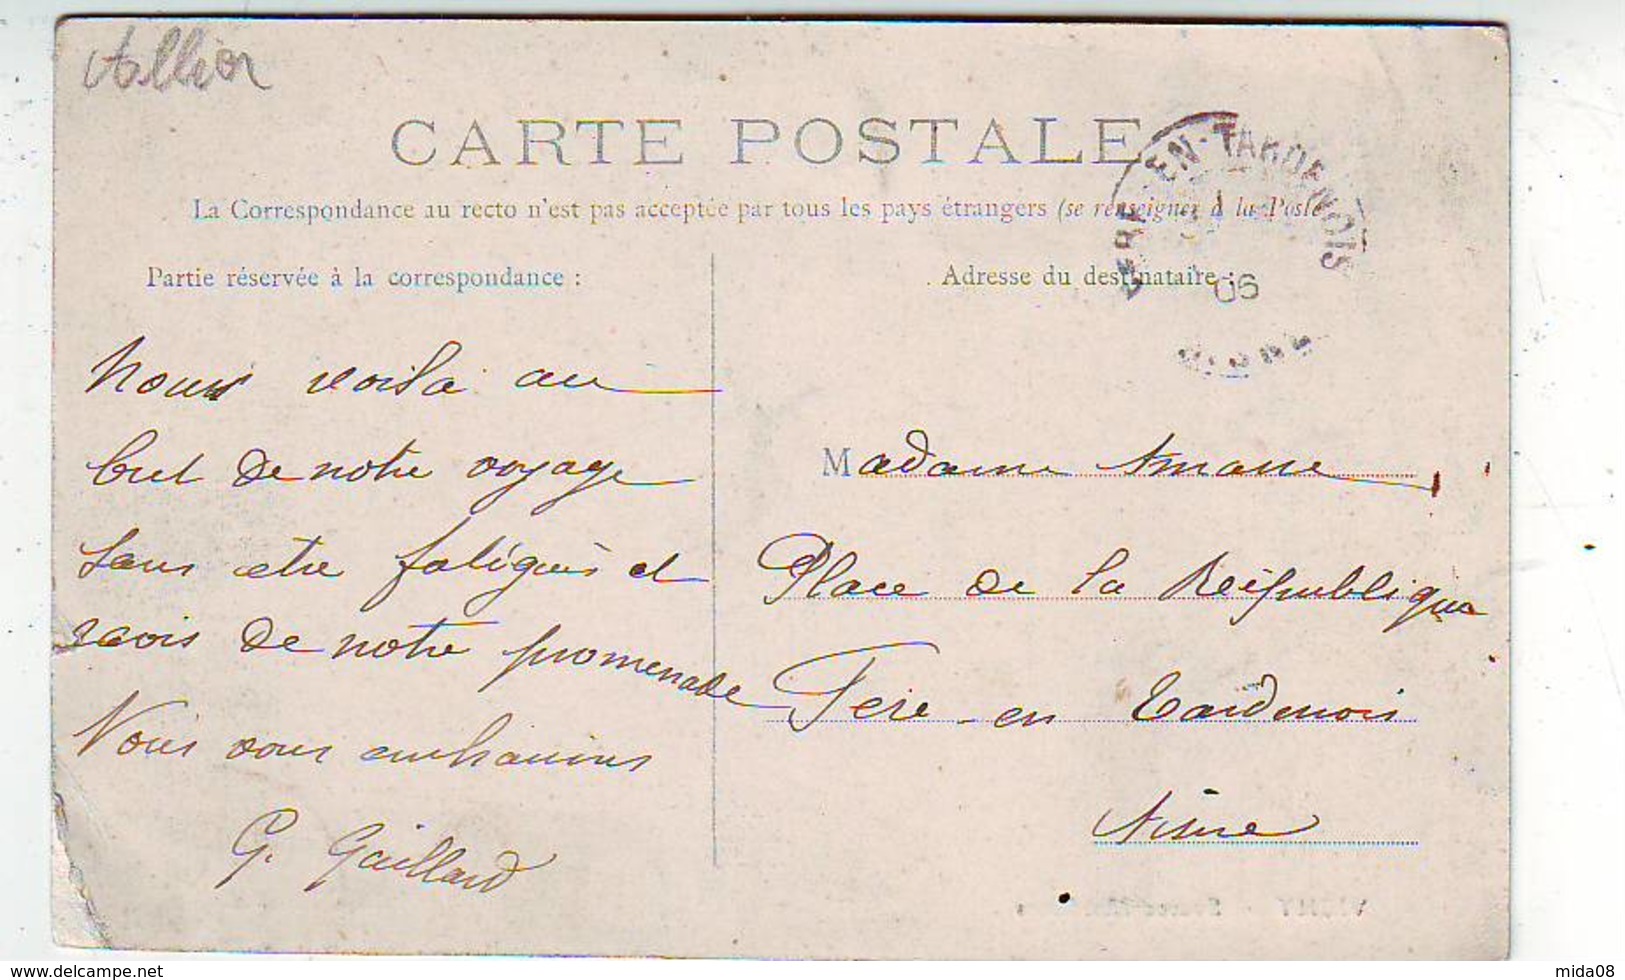 Allier
CARTE POSTALE
La Correspondance au recto n'est pas acceptée par tous les pays étrangers (se renseigner à la Poste
Partie réservée à la correspondance :
Adresse du destinataire :
EN-TARDENOIS
06
Nous voila au
but de notre voyage
sans etre fatigués et
ravis de notre promenade
Nous vous embrassons
G. Gaillard
Madame
Place de la République
Fère-en Tardenois
Aisne
delcampe.net
mida08